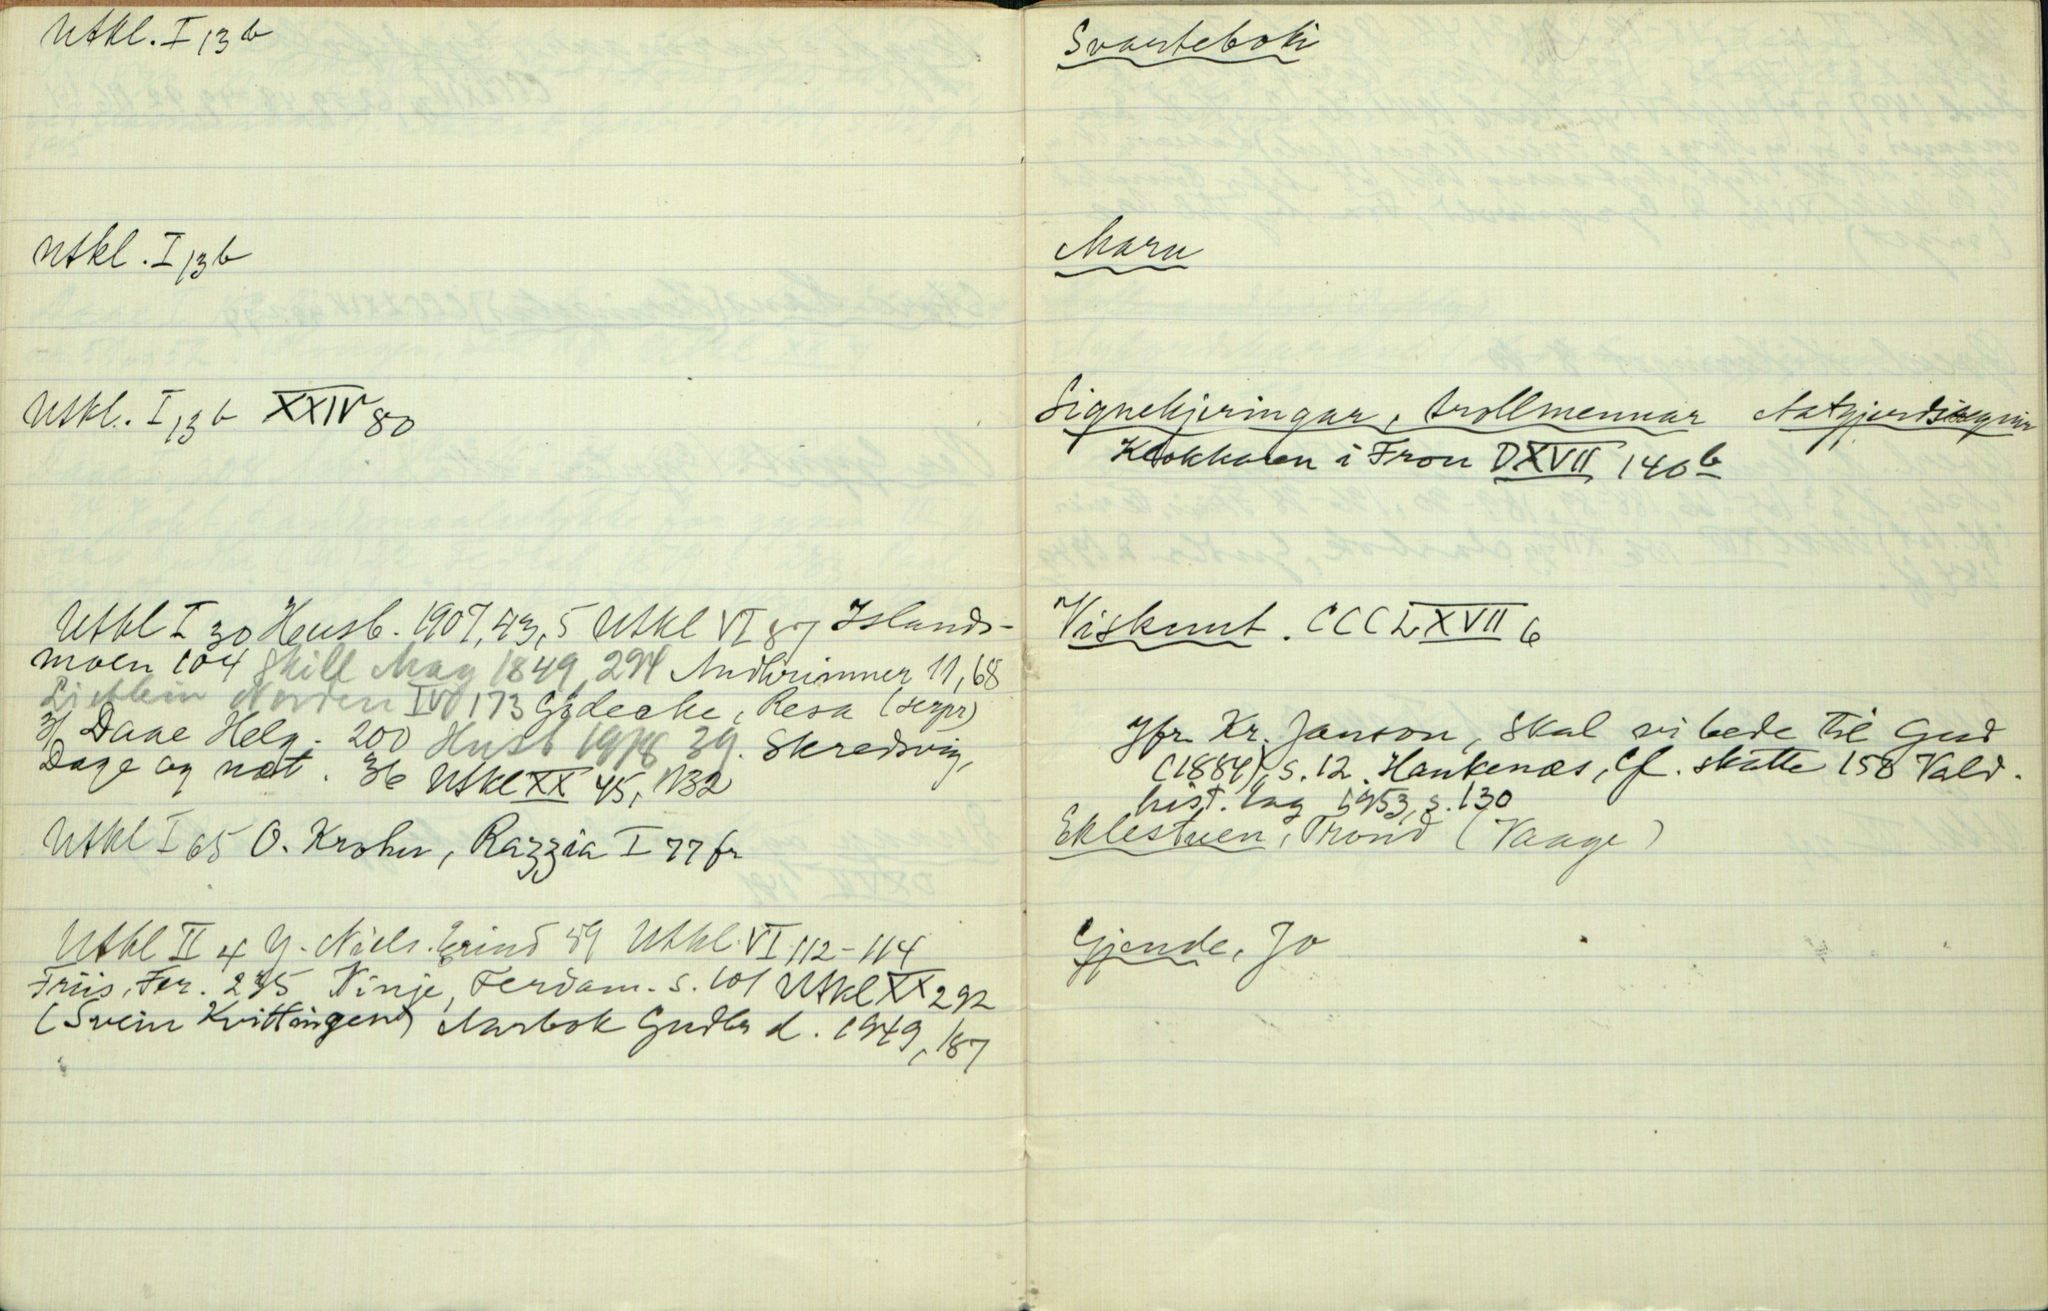 Utkl. I 13 b
Utkl. I 13 b
Utkl. I 13 b XXIV 80
Utkl I 30 Heusb. 1907, 43, 5 Utkl VI 87 Islands-
moen 104 Skill Mag 1849, 294 Andhrimner 11, 68
Norden IV 173 Resa
Daae Helg. 200 39. Skredsvig,
Dage og næt. 36 Utkl XX 45, 132
Utkl I 65 O. Krohn, Razzia I 77 fr
Utkl II 4 Y. Niels. Erind 59 Utkl. VI 112-114
Friis, Fer. 235 Vinje, Ferdam. s. 101 Utkl XX 292
(Svein Kvittingen) Aarbok Gudbr d. 1949, 187
Svarteboki
Mara
Signekjeringar, trollmennar Aatgjerdsegnir
Klokkaren i Fron DXVII 140 b
Visknut. CCCLXVII 6
Jfr Kr. Janson, Skal vi bede til Gud
(1884), s. 12. Haukenæs, Cf. skatte 158 Vald.
hist. lag 1953, s. 130
Eklestuen, Trond (Vaage)
Gjende, Jo